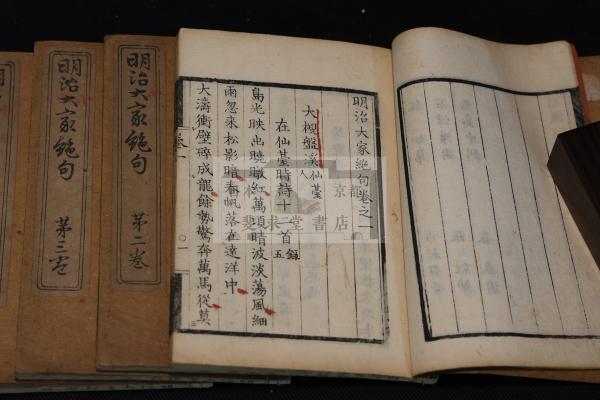 明治大家絶句卷之一
大槻盤溪仙臺人
在仙臺時詩十一首錄五
島光映出曉暾紅萬頃晴波淡蕩風細
雨忽來松影暗春帆落在遠洋中
大濤衝壁碎成龍餘勢驚奔萬馬從莫
卷一
明治大家絶句 第二卷
明治大家絶句 第三卷
京都
書店